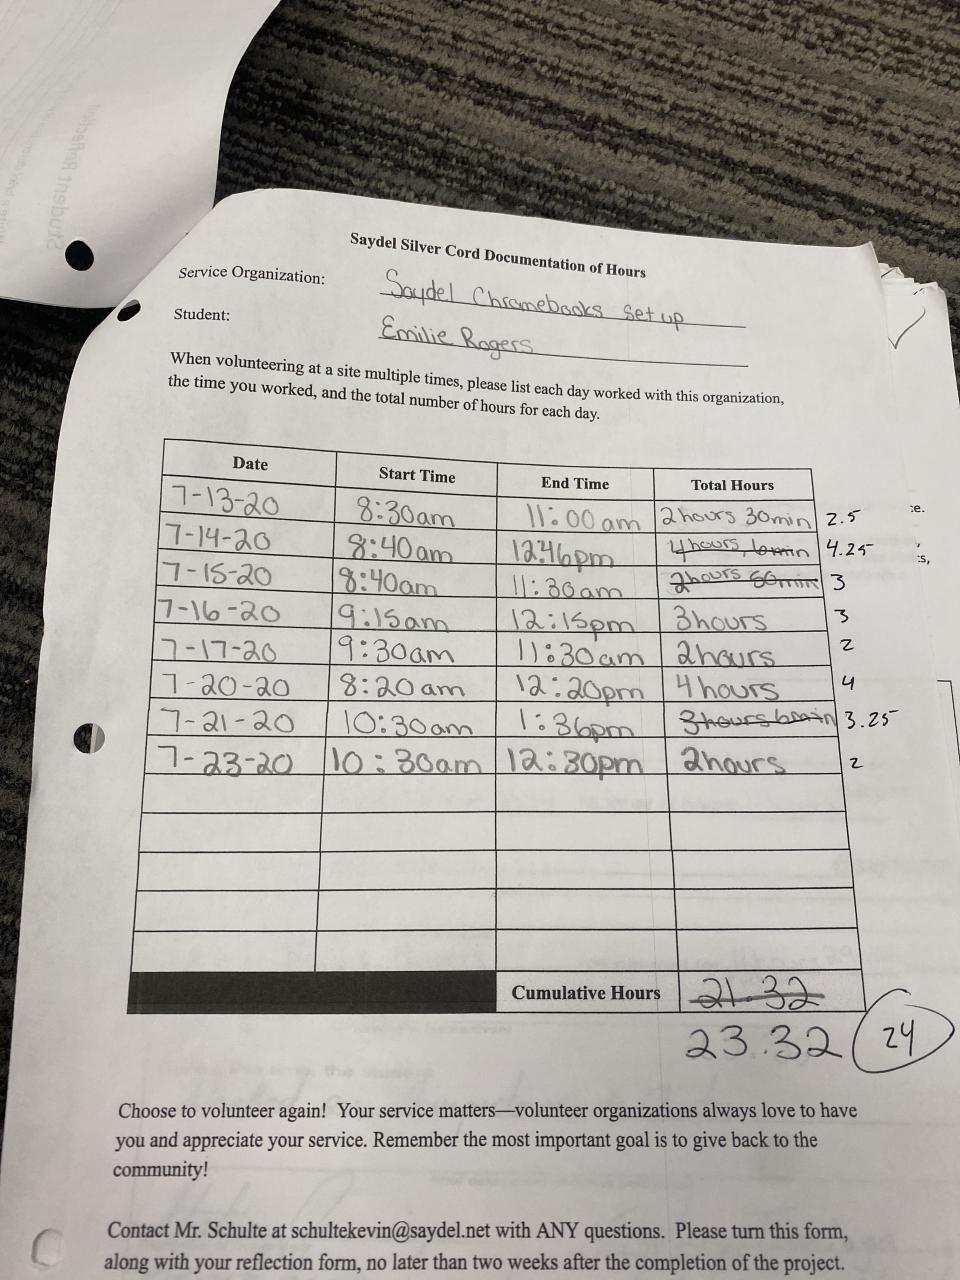 Saydel Silver Cord Documentation of Hours
Service Organization: Saydel Chromebooks set up
Student: Emilie Rogers
When volunteering at a site multiple times, please list each day worked with this organization,
the time you worked, and the total number of hours for each day.
Date Start Time End Time Total Hours
7-13-20 8:30am 11:00am 2hours 30min 2.5
7-14-20 8:40am 12:46pm 4hours, 6min 4.25
7-15-20 8:40am 11:30am 2hours 50min 3
7-16-20 9:15am 12:15pm 3hours 3
7-17-20 9:30am 11:30am 2hours 2
7-20-20 8:20am 12:20pm 4hours 4
7-21-20 10:30am 1:36pm 3hours 6min 3.25
7-23-20 10:30am 12:30pm 2hours 2
Cumulative Hours 21.32
23.32 24
Choose to volunteer again! Your service matters—volunteer organizations always love to have
you and appreciate your service. Remember the most important goal is to give back to the
community!
Contact Mr. Schulte at schultekevin@saydel.net with ANY questions. Please turn this form,
along with your reflection form, no later than two weeks after the completion of the project.